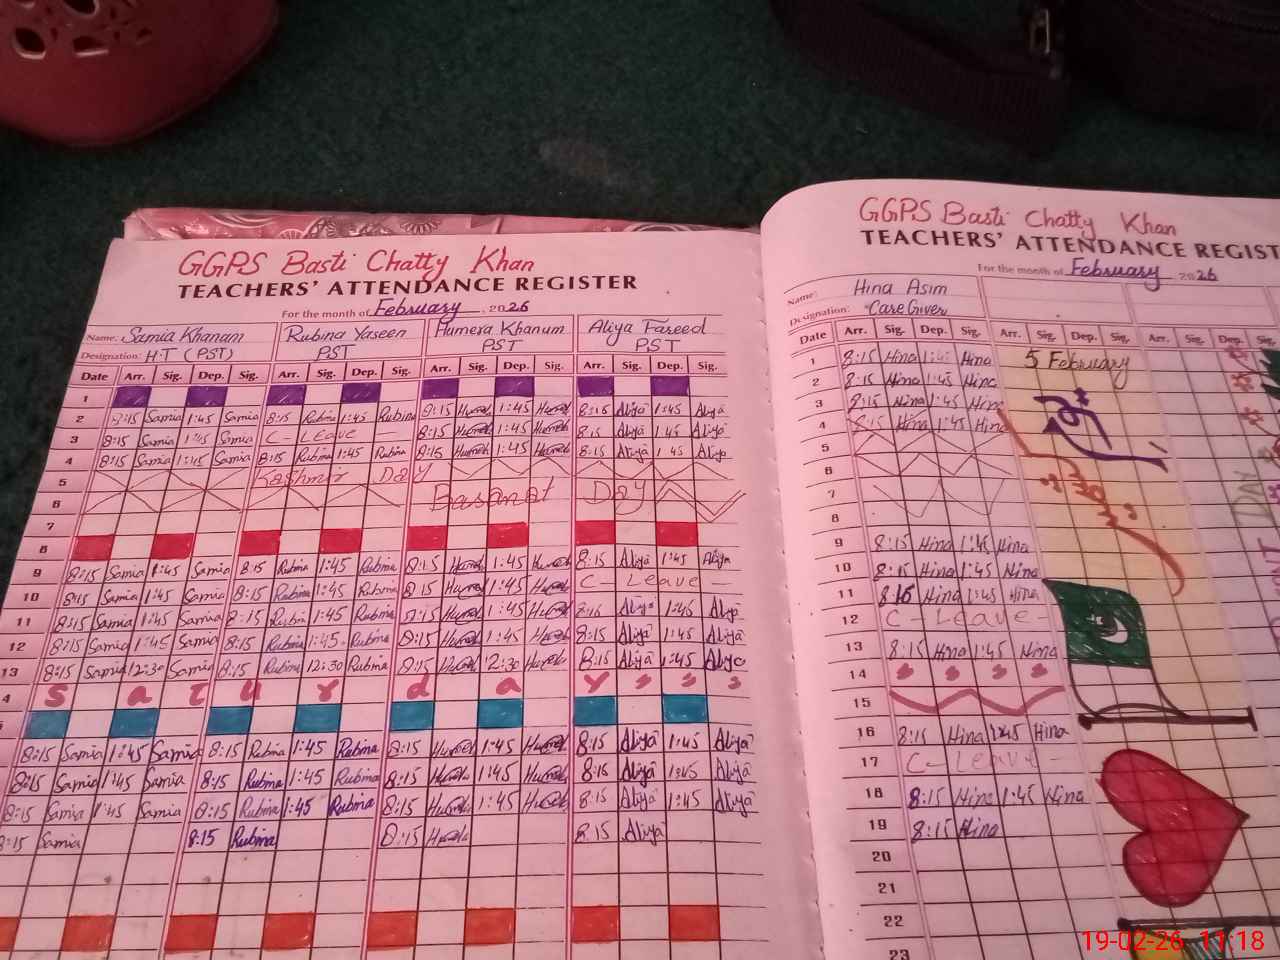 GGPS Basti Chatty Khan
TEACHERS' ATTENDANCE REGISTER
For the month of February, 2026
Name: Samia Khanam Rubina Yaseen Humera Khanum Aliya Fareed
Designation: H.T (PST) PST PST PST
Date Arr. Sig. Dep. Sig. Arr. Sig. Dep. Sig. Arr. Sig. Dep. Sig. Arr. Sig. Dep. Sig.
1
2 8:15 Samia 1:45 Samia 8:15 Rubina 1:45 Rubina 8:15 1:45 8:15 Aliya 1:45 Aliya
3 8:15 Samia 1:45 Samia C - Leave - 8:15 1:45 8:15 Aliya 1:45 Aliya
4 8:15 Samia 1:45 Samia 8:15 Rubina 1:45 Rubina 8:15 1:45 8:15 Aliya 1:45 Aliya
5 Kashmir Day
6 Basanat Day
7
8
9 8:15 Samia 1:45 Samia 8:15 Rubina 1:45 Rubina 8:15 1:45 8:15 Aliya 1:45 Aliya
10 8:15 Samia 1:45 Samia 8:15 Rubina 1:45 Rubina 8:15 1:45 C - Leave -
11 8:15 Samia 1:45 Samia 8:15 Rubina 1:45 Rubina 8:15 1:45 8:15 Aliya 1:45 Aliya
12 8:15 Samia 1:45 Samia 8:15 Rubina 1:45 Rubina 8:15 1:45 8:15 Aliya 1:45 Aliya
13 8:15 Samia 12:30 Samia 8:15 Rubina 12:30 Rubina 8:15 12:30 8:15 Aliya 1:45 Aliya
4 S a t u r d a y
8:15 Samia 1:45 Samia 8:15 Rubina 1:45 Rubina 8:15 1:45 8:15 Aliya 1:45 Aliya
8:15 Samia 1:45 Samia 8:15 Rubina 1:45 Rubina 8:15 1:45 8:15 Aliya 1:45 Aliya
8:15 Samia 1:45 Samia 8:15 Rubina 1:45 Rubina 8:15 1:45 8:15 Aliya 1:45 Aliya
8:15 Samia 8:15 Rubina 8:15 8:15 Aliya
GGPS Basti Chatty Khan
TEACHERS' ATTENDANCE REGIST
For the month of February 2026
Name: Hina Asim
Designation: Care Giver
Date Arr. Sig. Dep. Sig. Arr. Sig. Dep. Sig. Arr. Sig. Dep. Sig.
1 8:15 Hina 1:45 Hina 5 February
2 8:15 Hina 1:45 Hina
3 8:15 Hina 1:45 Hina
4 8:15 Hina 1:45 Hina
5
6
7
8
9 8:15 Hina 1:45 Hina
10 8:15 Hina 1:45 Hina
11 8:15 Hina 1:45 Hina
12 C - Leave -
13 8:15 Hina 1:45 Hina
14
15
16 8:15 Hina 1:45 Hina
17 C - Leave -
18 8:15 Hina 1:45 Hina
19 8:15 Hina
20
21
22
23
DAY
19-02-26 11:18